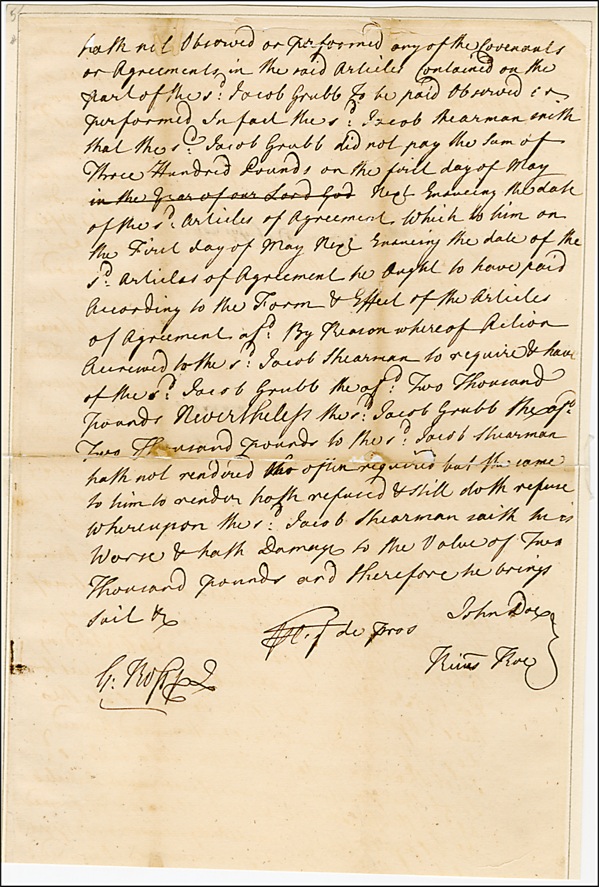 hath not Observed or performed any of the Covenants
or Agreements in the said Articles Contained on the
part of the sd. Jacob Grubb To be paid Observed or
performed In fact the sd. Jacob Shearman saith
that the sd. Jacob Grubb did not pay the Sum of
Three Hundred Pounds on the first day of May
in the Year of our Lord God Next Ensueing the date
of the sd. Articles of Agreement Which to him on
the First day of May Next Ensueing the date of the
sd. Articles of Agreement he Ought to have paid
According to the Form & Effect of the Articles
of Agreement afd. By Reason whereof Action
Accrewed to the sd. Jacob Shearman to require & have
of the sd. Jacob Grubb the afd. Two Thousand
pounds Nevertheless the sd. Jacob Grubb the afd.
Two Thousand pounds to the sd. Jacob Shearman
hath not rendered tho often required but the same
to him to render hath refused & still doth refuse
Whereupon the sd. Jacob Shearman saith he is
Worse & hath Damage to the Value of Two
Thousand pounds and therefore he brings
suit &c
John Doe
Plgs de pros
Richd Roe
G: Ross